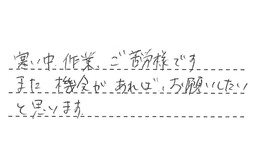 寒い中作業、ご苦労様です
また機会があれば、お願いしたい
と思います